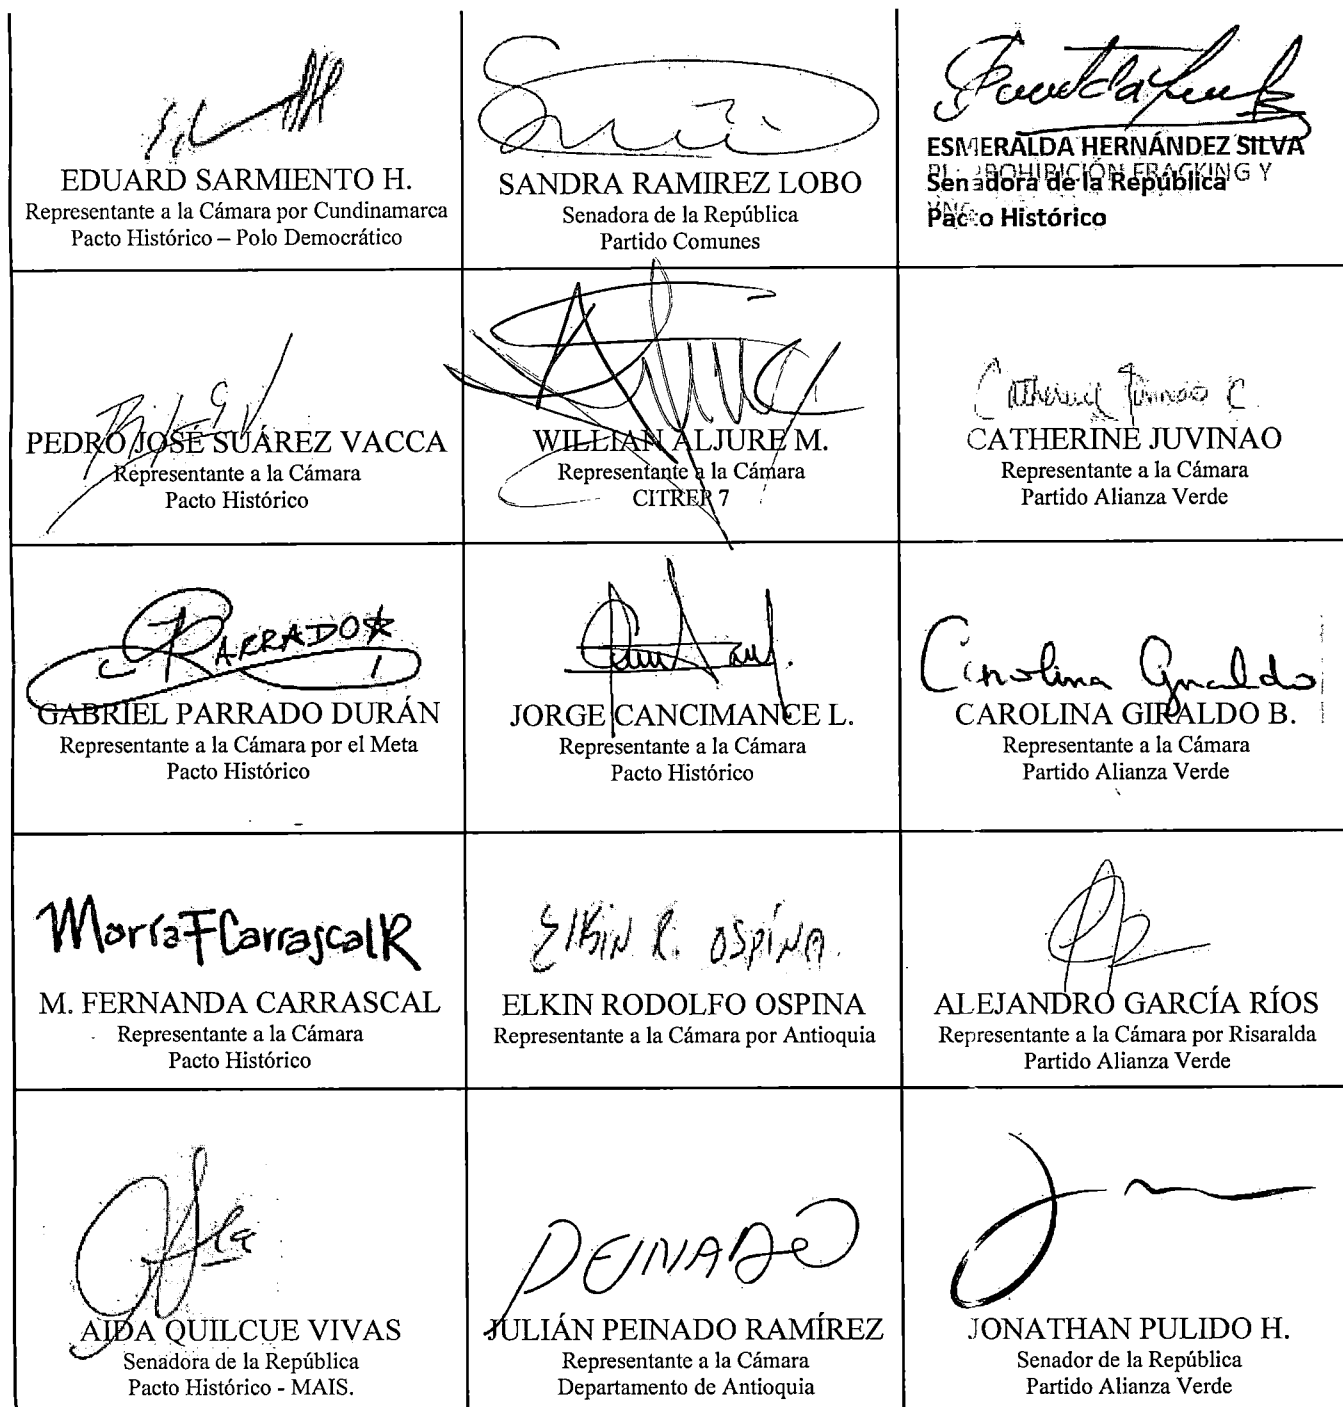 EDUARD SARMIENTO H.
Representante a la Cámara por Cundinamarca
Pacto Histórico – Polo Democrático
SANDRA RAMIREZ LOBO
Senadora de la República
Partido Comunes
ESMERALDA HERNÁNDEZ SILVA
PROHIBICIÓN FRACKING Y
Senadora de la República
Pacto Histórico
PEDRO JOSÉ SUÁREZ VACCA
Representante a la Cámara
Pacto Histórico
WILLIAN ALJURE M.
Representante a la Cámara
CITREP 7
Catherine Juvinao C.
CATHERINE JUVINAO
Representante a la Cámara
Partido Alianza Verde
PARRADO
GABRIEL PARRADO DURÁN
Representante a la Cámara por el Meta
Pacto Histórico
JORGE CANCIMANCE L.
Representante a la Cámara
Pacto Histórico
Carolina Giraldo
CAROLINA GIRALDO B.
Representante a la Cámara
Partido Alianza Verde
María F Carrascal R
M. FERNANDA CARRASCAL
Representante a la Cámara
Pacto Histórico
Elkin R. OSPINA.
ELKIN RODOLFO OSPINA
Representante a la Cámara por Antioquia
ALEJANDRO GARCÍA RÍOS
Representante a la Cámara por Risaralda
Partido Alianza Verde
AIDA QUILCUE VIVAS
Senadora de la República
Pacto Histórico - MAIS.
PEINADO
JULIÁN PEINADO RAMÍREZ
Representante a la Cámara
Departamento de Antioquia
JONATHAN PULIDO H.
Senador de la República
Partido Alianza Verde